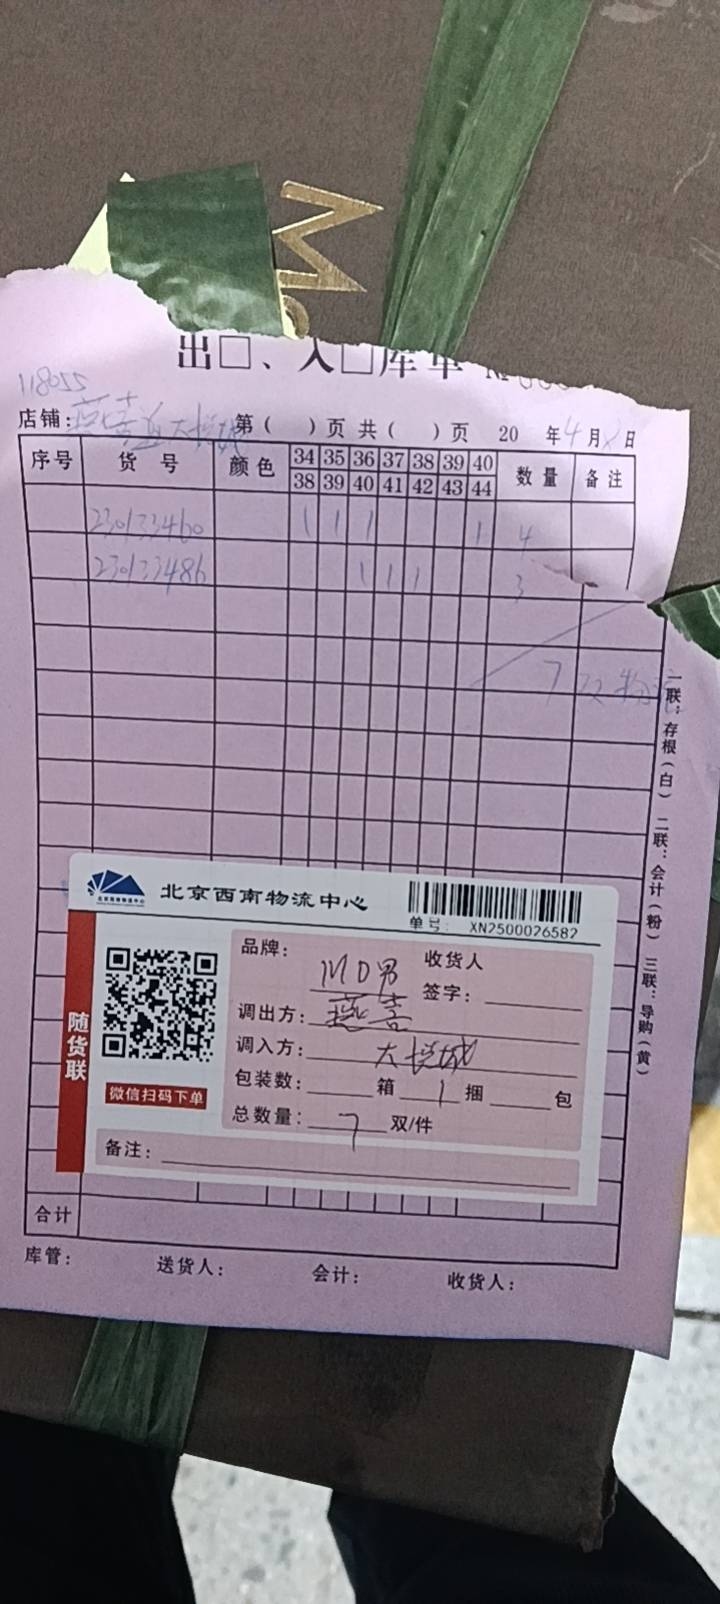 出□、入□库单 №
118055
店铺：燕莎返大悦城 第（ ）页 共（ ）页 20 年4月 日
序号 货号 颜色 34 35 36 37 38 39 40 数量 备注
38 39 40 41 42 43 44
230133460 1 1 1 1 4
230133486 1 1 1 3
7双 物流
一联：存根（白） 二联：会计（粉） 三联：导购（黄）
北京西南物流中心
单号： XN2500026582
随货联
微信扫码下单
品牌： MD男 收货人
签字：
调出方：
调入方：大悦城
包装数： 箱 1 捆 包
总数量：7 双/件
备注：
合计
库管： 送货人： 会计： 收货人：